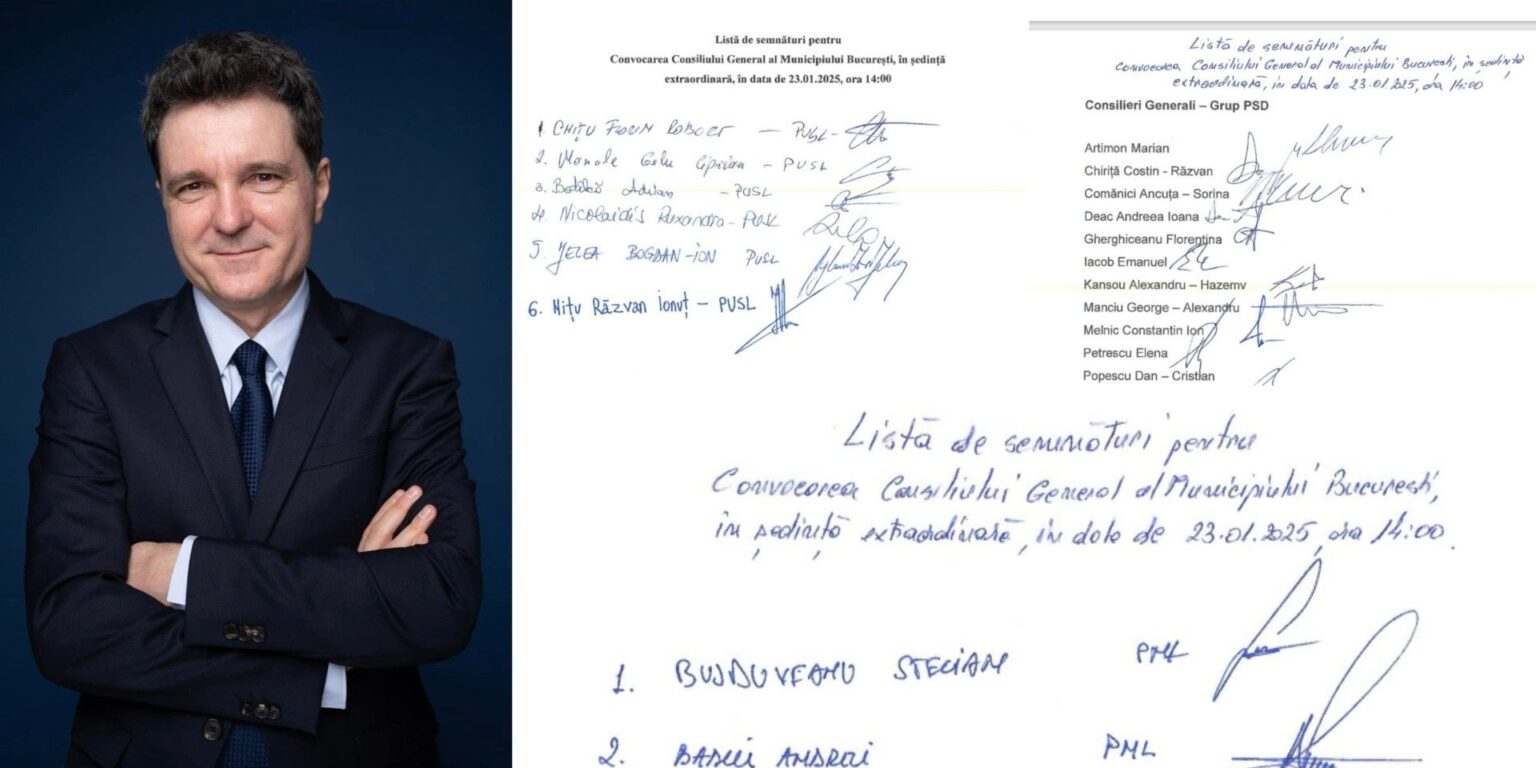 Listă de semnături pentru
Convocarea Consiliului General al Municipiului București, în ședință
extraordinară, în data de 23.01.2025, ora 14:00
1. CHIȚU FLORIN ROBERT — PUSL -
2. Manole Gelu Ciprian - PUSL
3. Adrian - PUSL
4. Nicolaidis Ruxandra - PUSL
5. JELEA BOGDAN-ION PUSL
6. Nițu Răzvan Ionuț — PUSL
Listă de semnături pentru
Convocarea Consiliului General al Municipiului București, în ședință
extraordinară, în data de 23.01.2025, ora 14:00
Consilieri Generali – Grup PSD
Artimon Marian
Chiriță Costin - Răzvan
Comănici Ancuța – Sorina
Deac Andreea Ioana
Gherghiceanu Florentina
Iacob Emanuel
Kansou Alexandru – Hazemv
Manciu George – Alexandru
Melnic Constantin Ion
Petrescu Elena
Popescu Dan – Cristian
Listă de semnături pentru
Convocarea Consiliului General al Municipiului București,
în ședință extraordinară, în data de 23.01.2025, ora 14:00.
1. BUJDUVEANU STELIAN PNL
2. ANDREI PNL